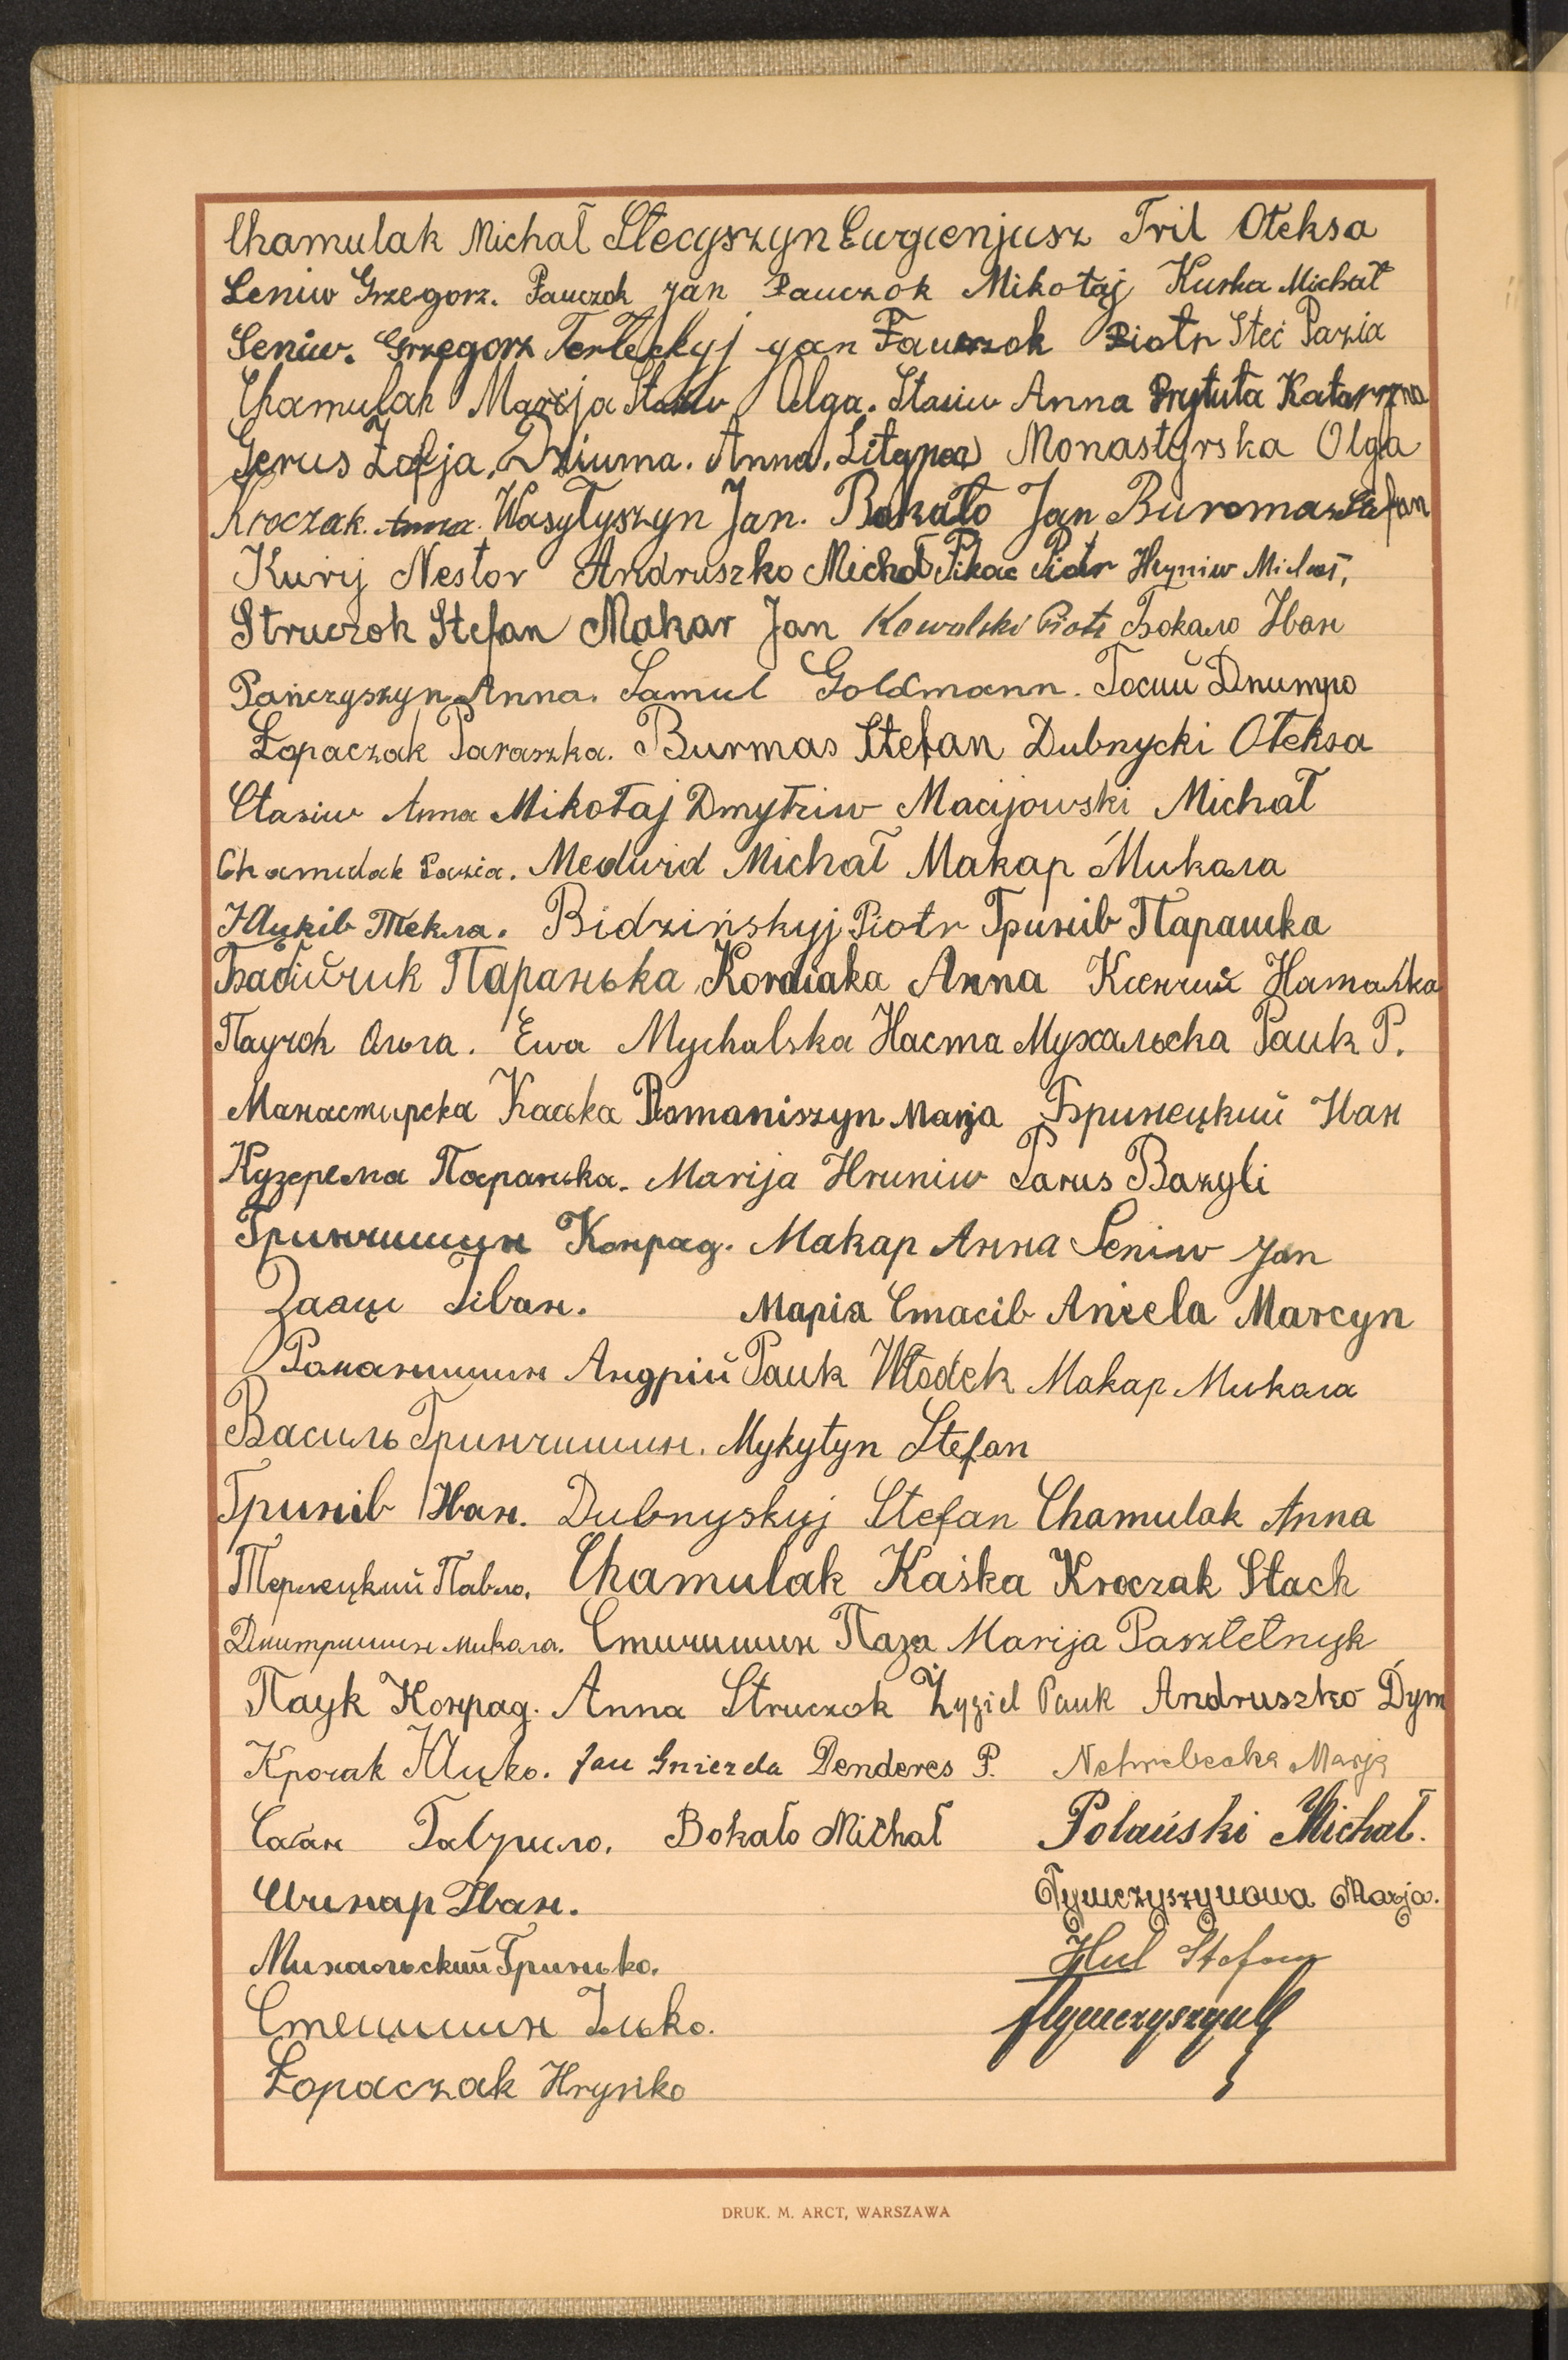 Chamulak Michał Stecyszyn Eugienjusz Tril Ołeksa
Seniw Grzegorz. Pauczok Jan Pauczok Mikołaj Kuśka Michał
Seniw. Grzegorz Terłeckyj Jan Pauczok Piotr Steć Pazia
Chamulak Marja Olga. Stasiw Anna Prytuła Katarzyna
Gerus Zofja. Dziuma. Anna. Monastyrska Olga
Kroczak. Anna. Wasyłyszyn Jan. Bokało Jan Buromas Stefan
Kurij Nestor Andruszko Michał Pikac Piotr Hryniw Michał,
Struczok Stefan Makar Jan Kowalski Piotr Бокало Іван
Pańczyszyn Anna. Samul Goldmann. Госий Дмитро
Łopaczak Paraszka. Burmas Stefan Dubnycki Ołeksa
Stasiw Anna Mikołaj Dmytriw Macijowski Michał
Chamulak Pazia. Medwid Michał Макар Микола
Яцків Текля. Bidzińskyj Piotr Гринів Парашка
Бабійчик Паранька Kordiaka Anna Ксенчин Наталька
Паучок Ольга. Ewa Mychalska Настя Мухальска Pauk P.
Манастирска Каська Romaniszyn Marja Бринецкий Иван
Кузерема Параська. Marija Hruniw Parus Bazyli
Гринчишин Конрад. Макар Анна Seniw Jan
Заяць Іван. Марія Стасів Aniela Marcyn
Романишин Андрій Pauk Włodek Макар Микола
Василь Гринчишин. Mykytyn Stefan
Гринів Іван. Dubnyskyj Stefan Chamulak Anna
Терлецкий Павло. Chamulak Kaśka Kroczak Stach
Дмитришин Микола. Стичишин Пазя Marija Paszletnyk
Паук Конрад. Anna Struczok Żyziel Pauk Andruszko Dym
Крочак Яцко. Jan Gniezda Denderes P. Nehrebecka Marja
Саган Гаврило. Bokało Michał Polański Michał.
Чинар Іван. Tymczyszynowa Marja.
Михальский Гринько. Hul Stefan
Стецишин Ілько. Tymczyszyn
Łopaczak Hryńko
DRUK. M. ARCT, WARSZAWA